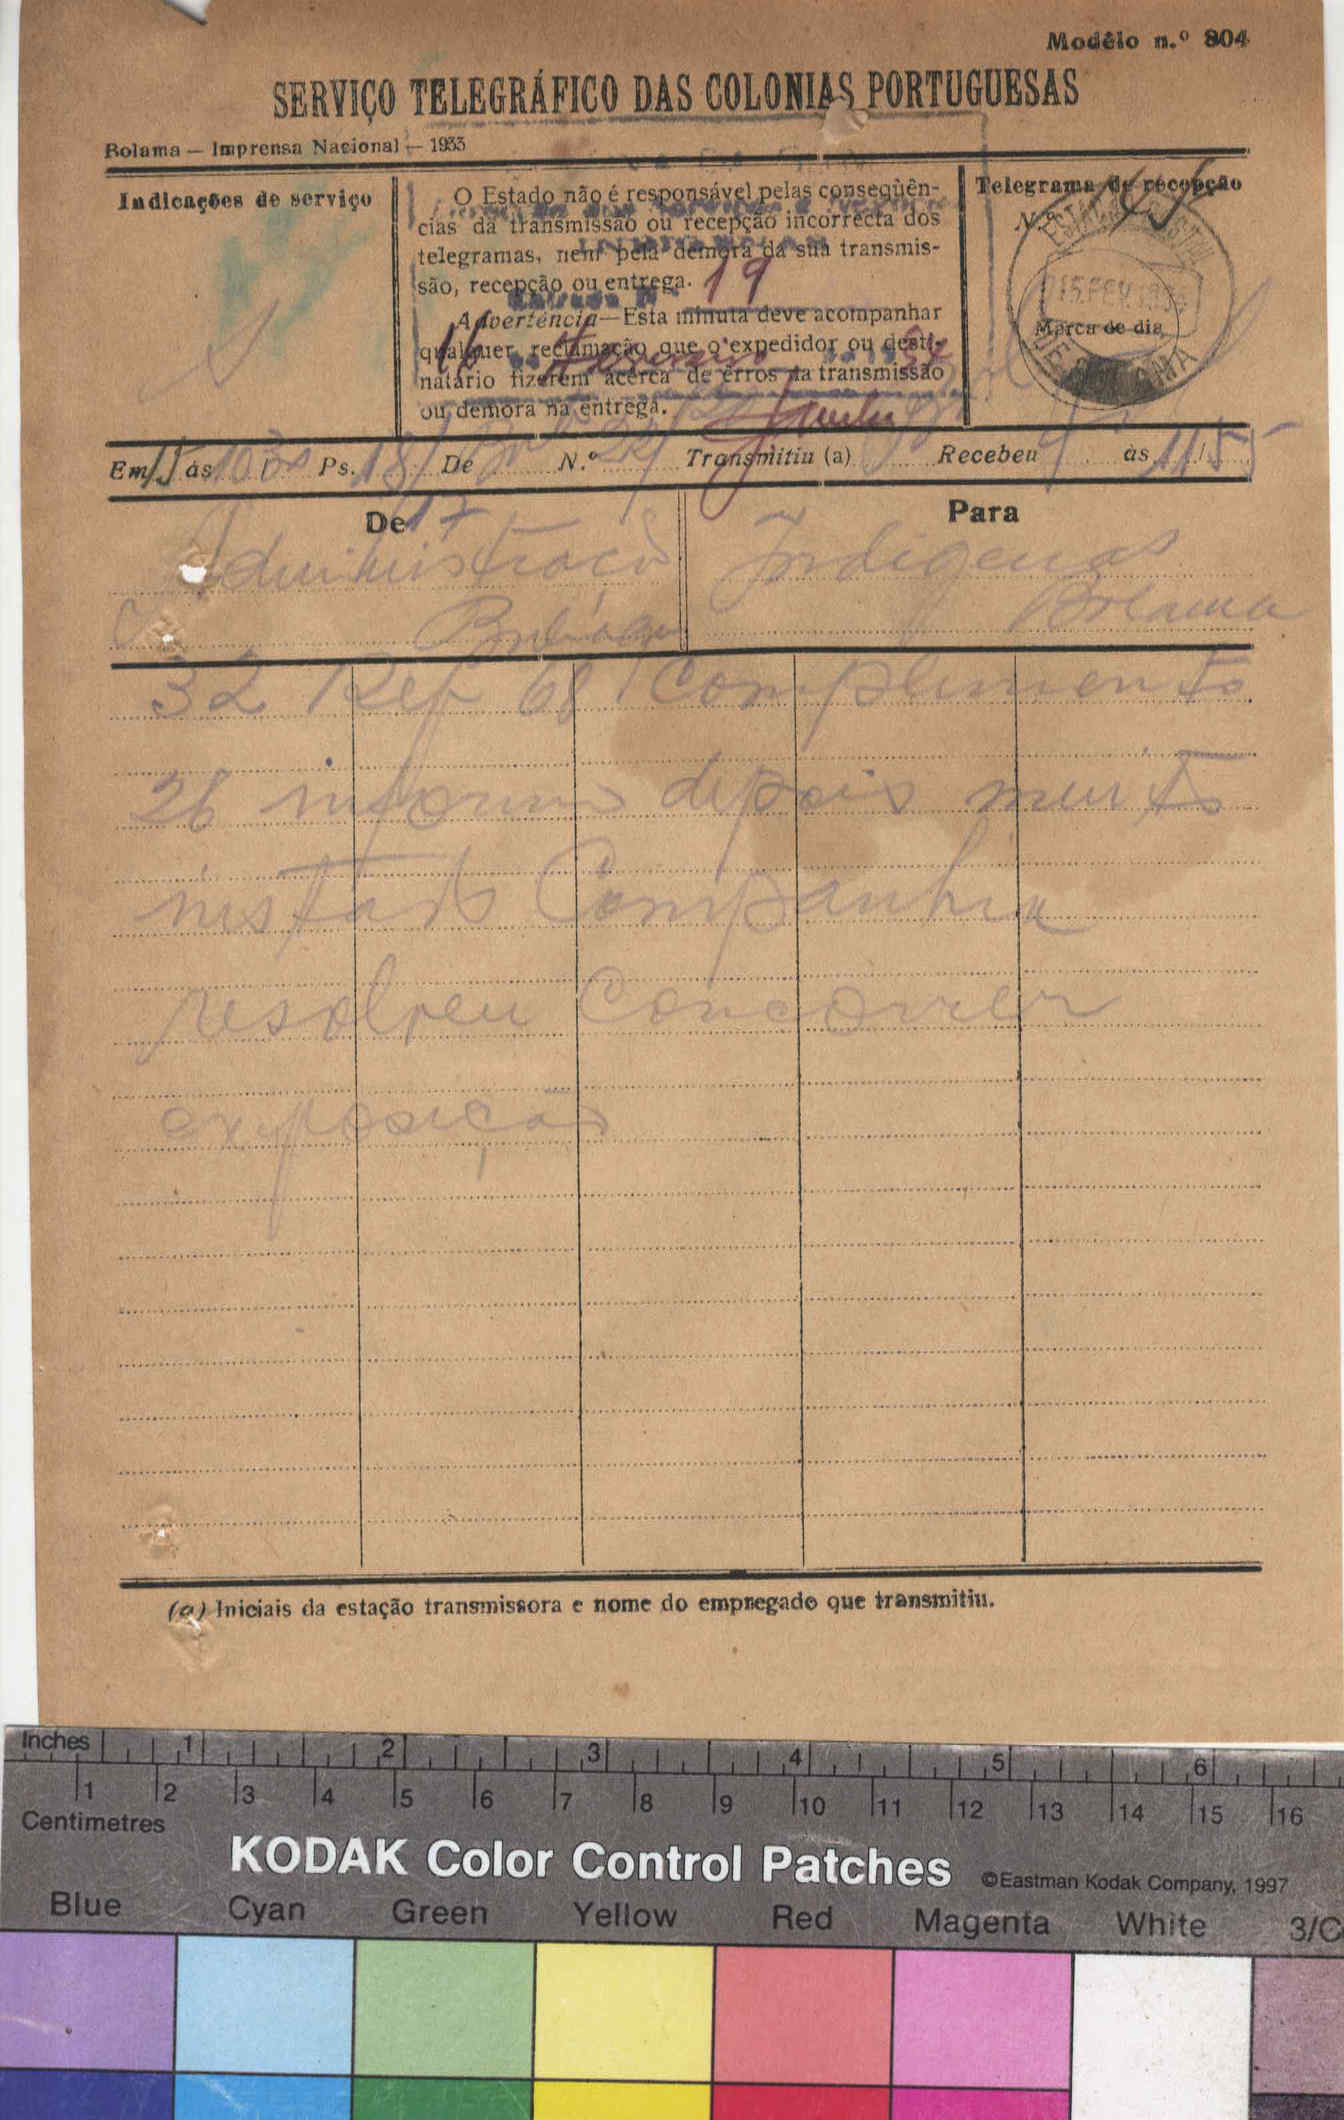 Modêlo n.º 804
SERVIÇO TELEGRÁFICO DAS COLONIAS PORTUGUESAS
Bolama — Imprensa Nacional — 1933
Indicações de serviço
O Estado não é responsável pelas conseqüên-
cias da transmissão ou recepção incorrecta dos
telegramas, nem pela demora da sua transmis-
são, recepção ou entrega.
Advertência—Esta minuta deve acompanhar
qualquer reclamação que o expedidor ou desti-
natário fizerem àcêrca de erros na transmissão
ou demora na entrega.
19
16 Fevereiro 34
Telegrama de recepção
N.º 145
15 FEV. 1934
Marca de dia
Em 15 às Ps. 18/17 De N.º Transmitiu (a) Recebeu às 11/55
De
Para
Administração
Indigenas
Bolama
32 Ref 68 Complemento
26 informo depois muito
instado Companhia
resolveu concorrer
exposição
(a) Iniciais da estação transmissora e nome do empregado que transmitiu.
Inches 1 2 3 4 5 6
1 2 3 4 5 6 7 8 9 10 11 12 13 14 15 16
Centimetres
KODAK Color Control Patches ©Eastman Kodak Company, 1997
Blue Cyan Green Yellow Red Magenta White 3/C